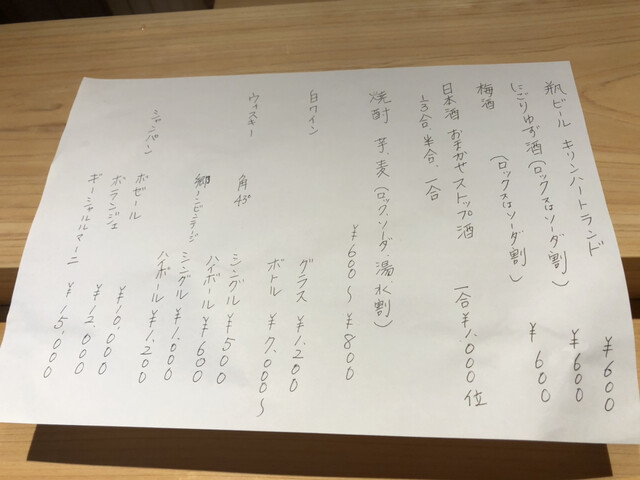 瓶ビール キリンハートランド ¥600
にごりゆず酒(ロック又はソーダ割) ¥600
梅酒 (ロック又はソーダ割) ¥600
日本酒 おまかせストップ酒 一合¥1.000位
1/3合、半合、一合
焼酎 芋、麦(ロック、ソーダ、湯、水割)
¥600〜¥800
白ワイン グラス ¥1.200
ボトル ¥7.000〜
ウィスキー 角43° シングル ¥500
ハイボール ¥600
響・ビンテージ シングル ¥1.000
ハイボール ¥1.200
シャンパン ポゼール ¥10.000
ボランジェ ¥12.000
ギーシャルルマーニ ¥15.000